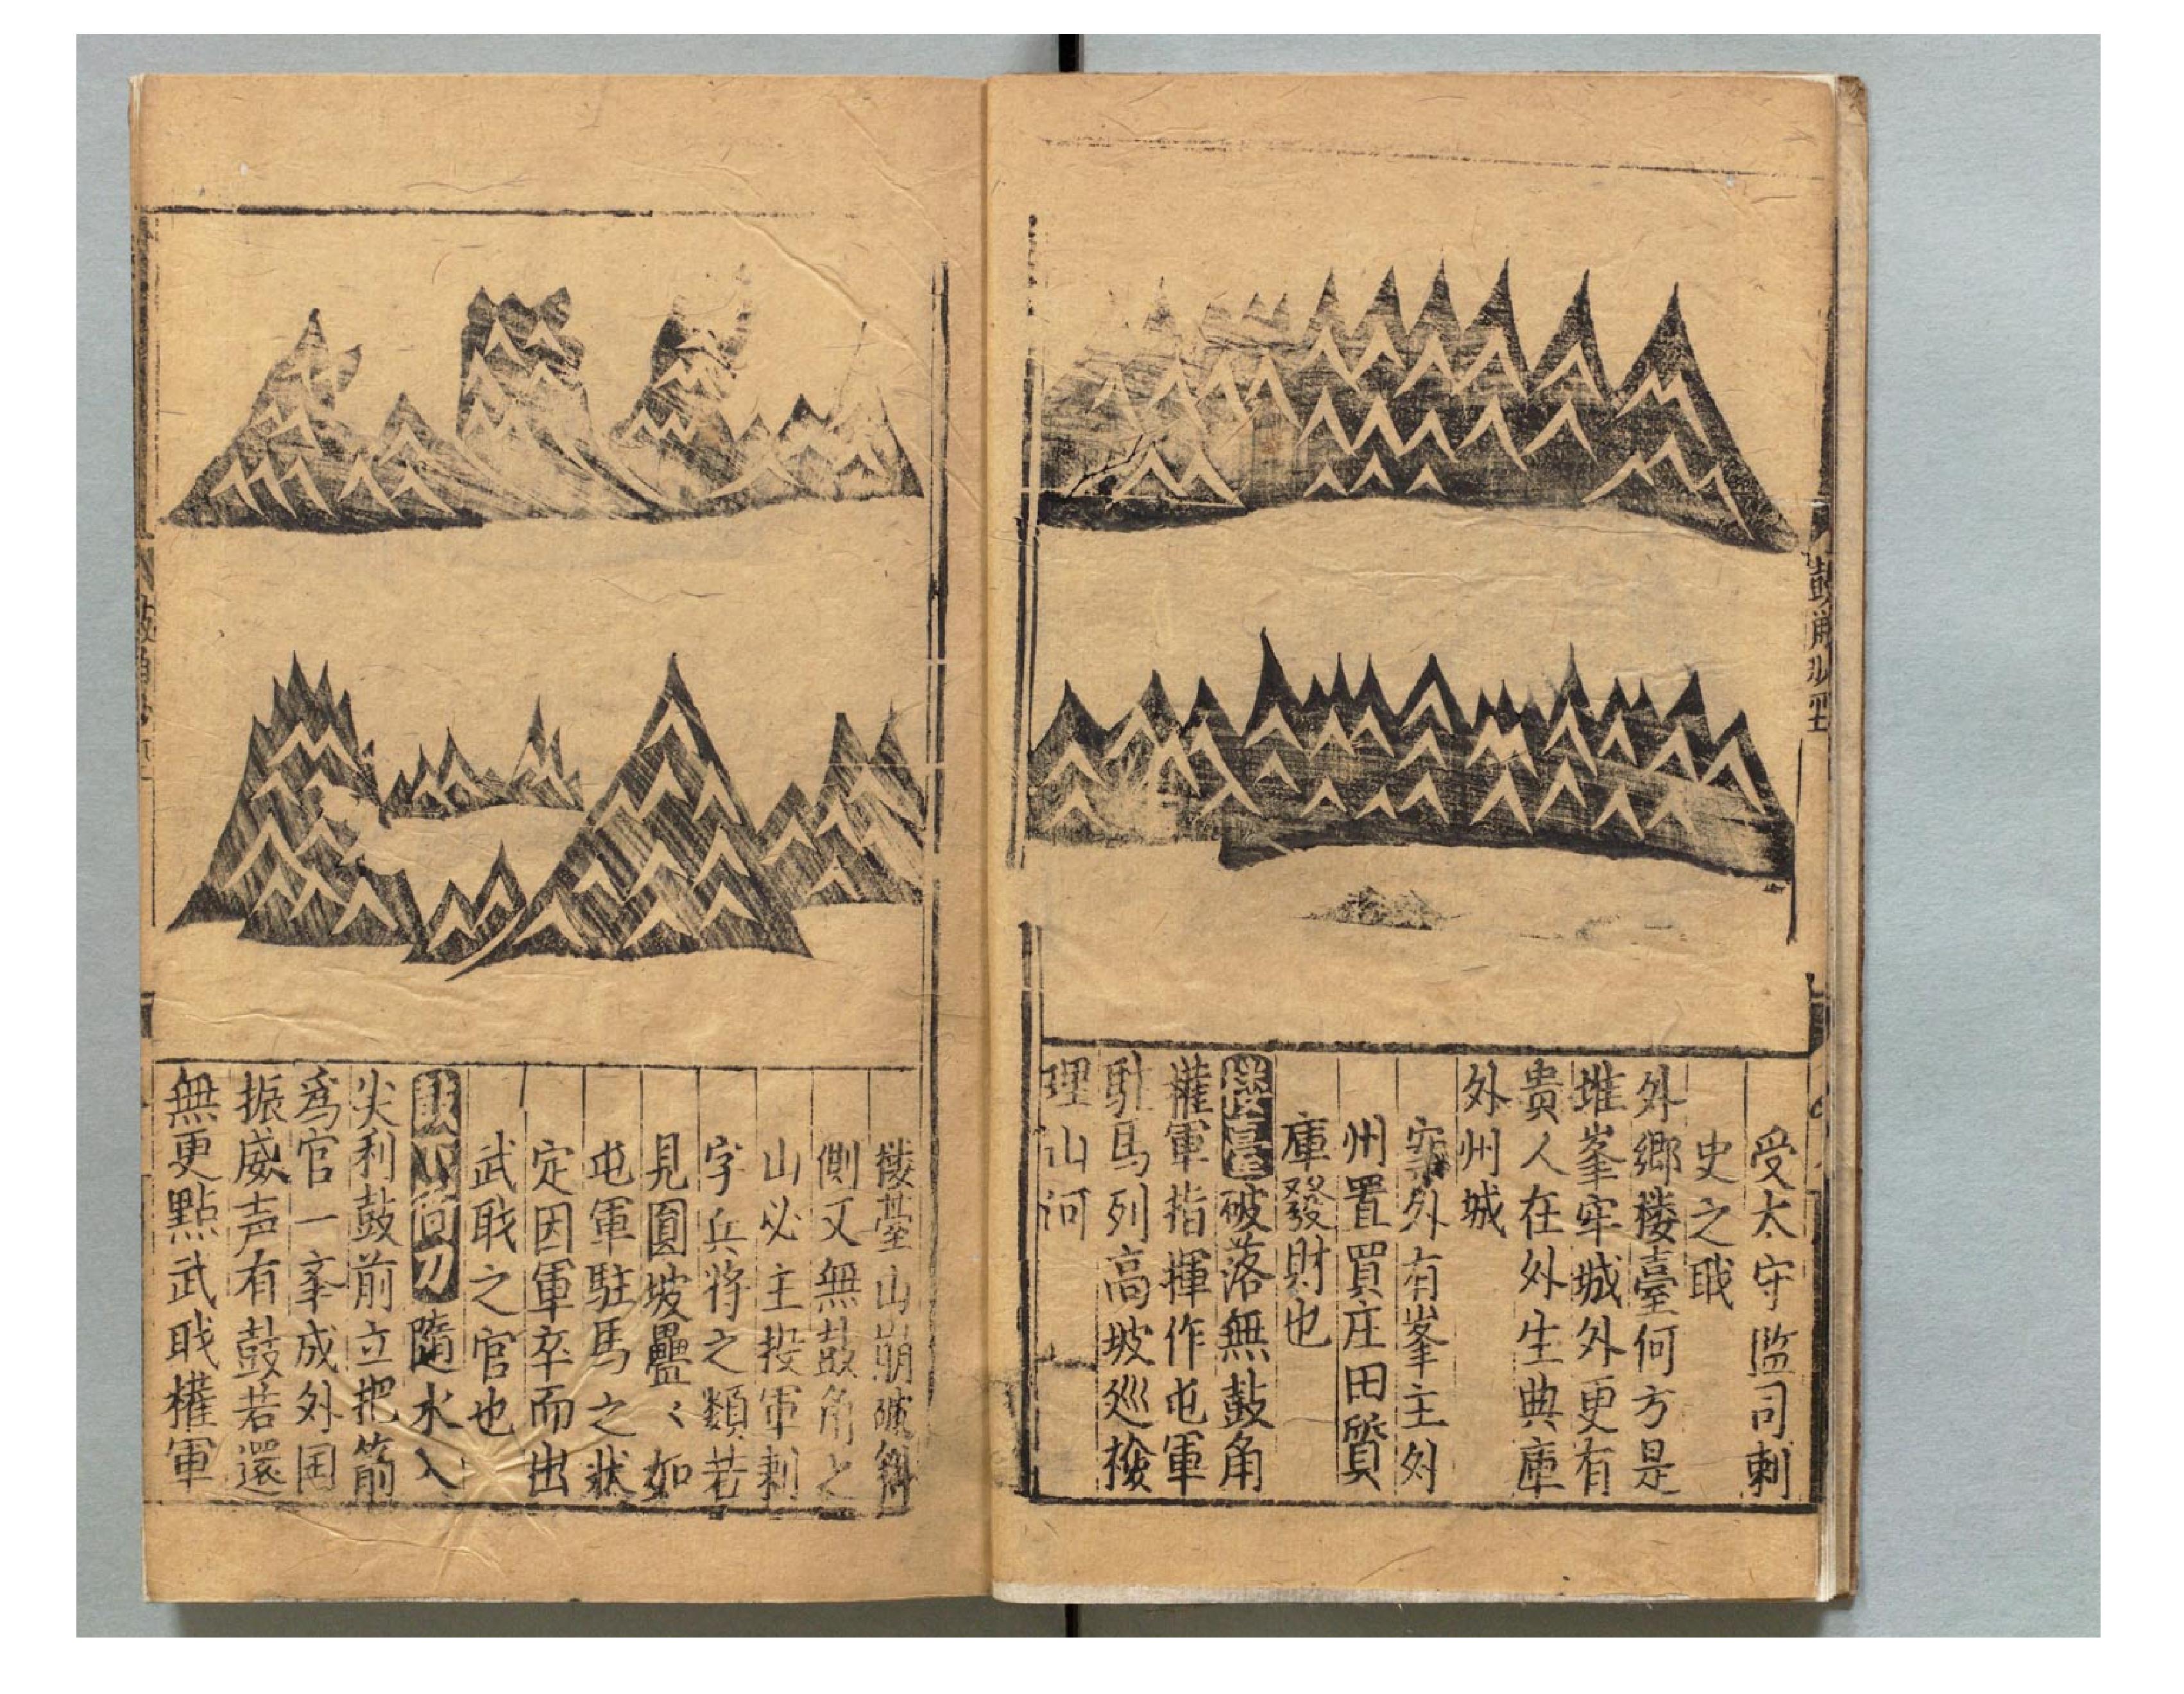 受太守監司刺
史之職
外鄉楼臺何方是
堆峯牢城外更有
貴人在外生典庫
外州城
案外有峯主外
州置買庄田質
庫發財也
楼臺破落無鼓角
權軍指揮作屯軍
駐馬列高坡巡檢
理山河
楼臺山崩破斜
側又無鼓角之
山必主投軍刺
字兵将之類若
見圓坡疊〻如
屯軍駐馬之状
定因軍卒而出
武職之官也
隨水入
尖利鼓前立把箭
爲官一峯成外囯
振威声有鼓若還
無更點武職權軍